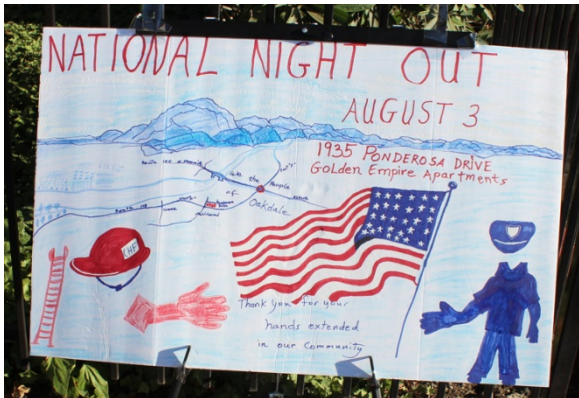 NATIONAL NIGHT OUT
AUGUST 3
1935 PONDEROSA DRIVE
Golden Empire Apartments
We the People
of Oakdale
CHF
Thank you for your
hands extended
in our community